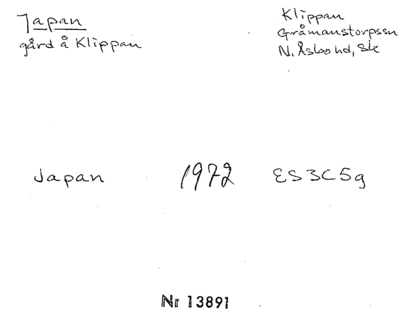 Japan
gård å Klippan
Klippan
Gråmanstorpssn
N. Åsbo hd, Sk
Japan 1972 ES3C5g
Nr 13891